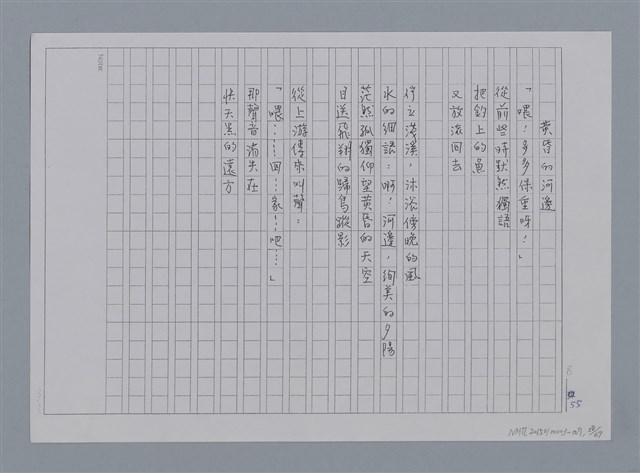 黃昏的河邊
「喂！多多保重呀！」
從前些時默然獨語
把釣上的魚
又放流回去
佇立淺溪，沐浴傍晚的風
水的細語：啊！河邊，絢美的夕陽
茫然孤獨仰望黃昏的天空
目送飛翔的歸鳥蹤影
從上游傳來叫聲：
「喂……回…家…吧……」
那聲音消失在
快天黑的遠方
Note
55